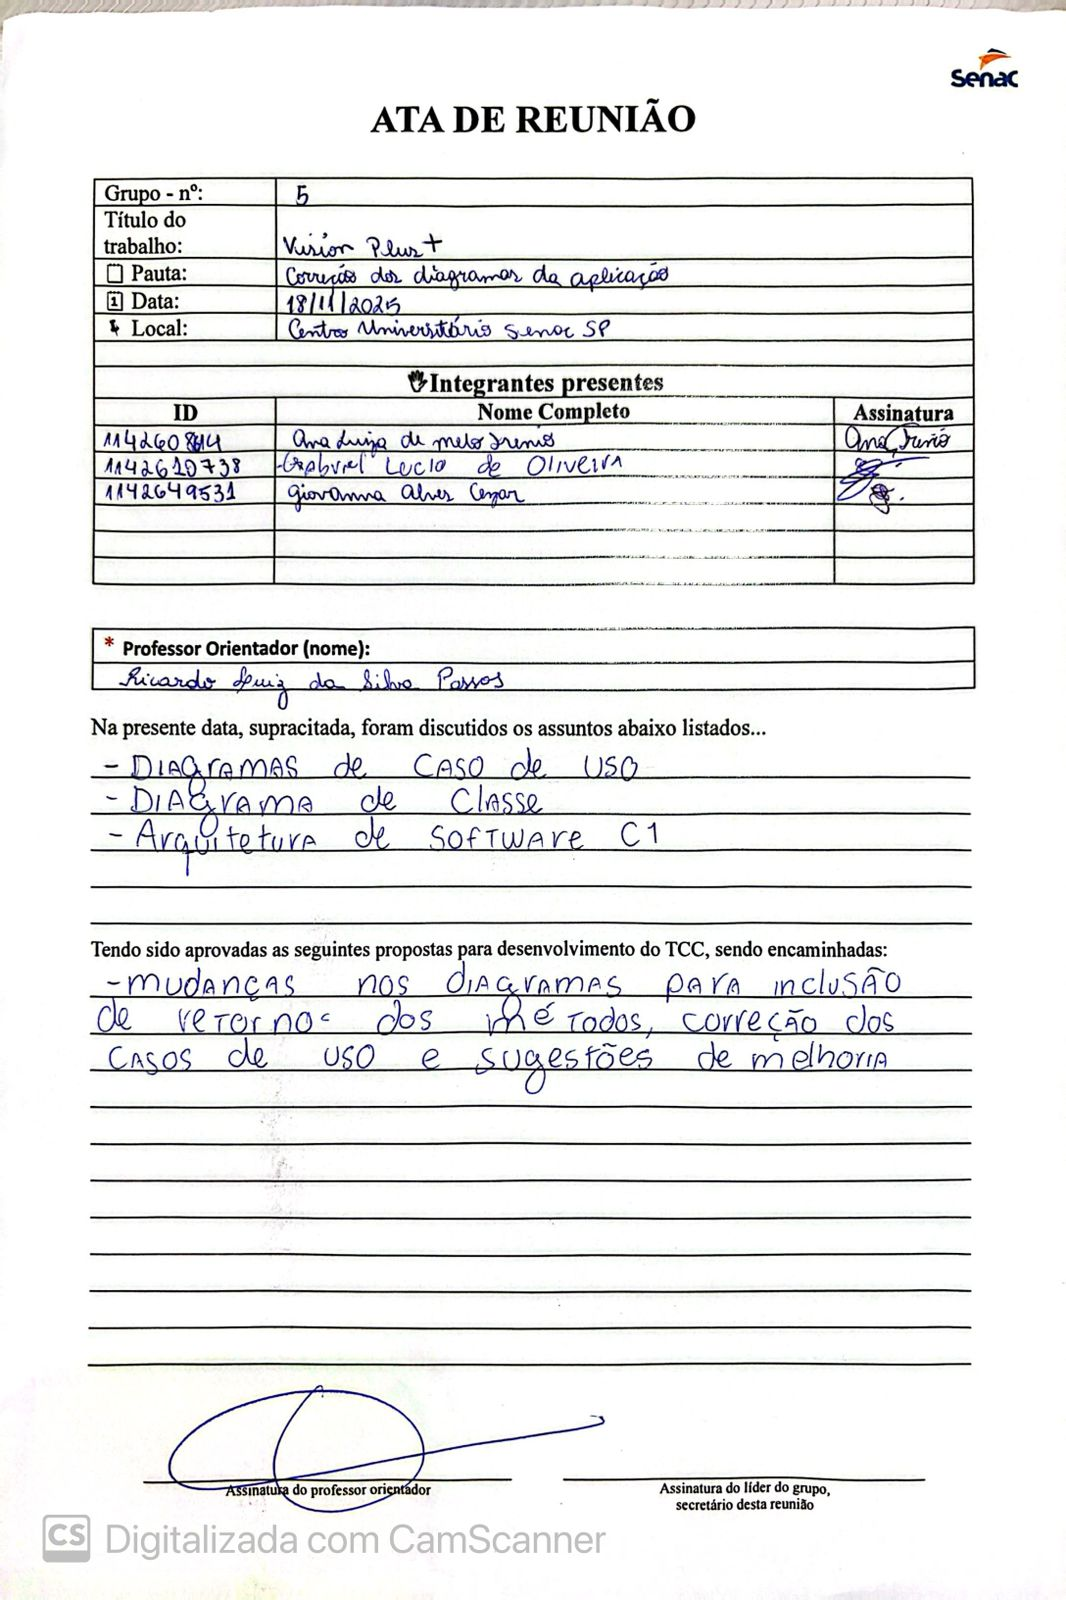 Senac
ATA DE REUNIÃO
Grupo - nº: 5
Título do
trabalho: Vision Plus+
Pauta: Correção dos diagramas da aplicação
Data: 18/11/2025
Local: Centro Universitário Senac SP
Integrantes presentes
ID Nome Completo Assinatura
Ana Luiza de melo Ana
1142610738 Gabriel Lucio de Oliveira
1142649531 giovanna alves Cezar
* Professor Orientador (nome):
Ricardo Luiz da Silva Passos
Na presente data, supracitada, foram discutidos os assuntos abaixo listados...
- DIAgramas de CASO de USO
- DIAgrama de Classe
- Arquitetura de Software C1
Tendo sido aprovadas as seguintes propostas para desenvolvimento do TCC, sendo encaminhadas:
- mudanças nos diagramas para inclusão
de retorno dos métodos, correção dos
casos de uso e sugestões de melhoria
Assinatura do professor orientador
Assinatura do líder do grupo,
secretário desta reunião
CS Digitalizada com CamScanner